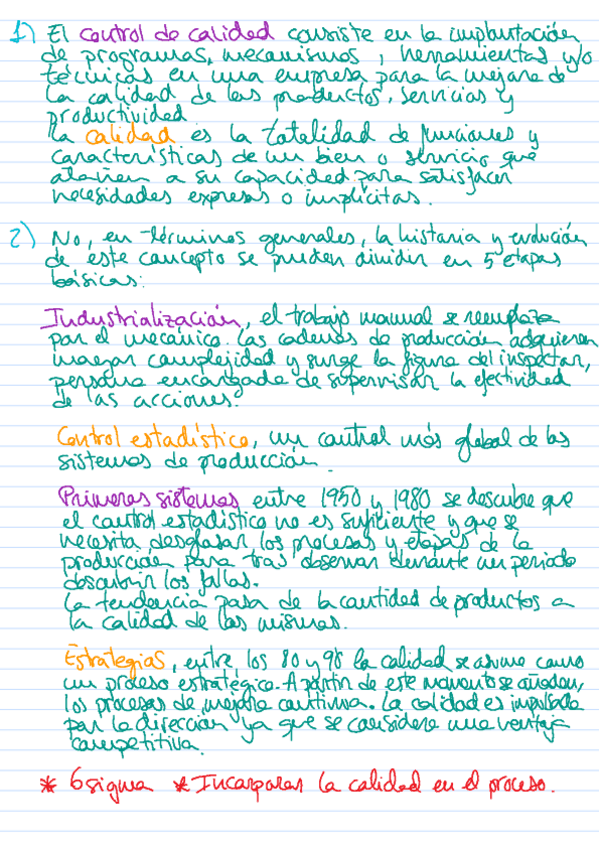 1) El control de calidad consiste en la implantación
de programas, mecanismos, herramientas y/o
técnicas en una empresa para la mejora de
la calidad de los productos, servicios y
productividad
La calidad es la totalidad de funciones y
características de un bien o servicio que
atañen a su capacidad para satisfacer
necesidades expresas o implícitas.
2) No, en términos generales, la historia y evolución
de este concepto se pueden dividir en 5 etapas
básicas:
Industrialización, el trabajo manual se reemplaza
por el mecánico. Las cadenas de producción adquieren
mayor complejidad y surge la figura del inspector,
persona encargada de supervisar la efectividad
de las acciones.
Control estadístico, un control más global de los
sistemas de producción.
Primeros sistemas entre 1950 y 1980 se descubre que
el control estadístico no es suficiente y que se
necesita desglosar los procesos y etapas de la
producción para tras observar durante un periodo
descubrir los fallos.
La tendencia pasa de la cantidad de productos a
la calidad de los mismos.
Estrategias, entre los 80 y 90 la calidad se asume como
un proceso estratégico. A partir de este momento se añaden,
los procesos de mejora continua. La calidad es impulsada
por la dirección ya que se considera una ventaja
competitiva.
* 6sigma * Incorporar la calidad en el proceso.